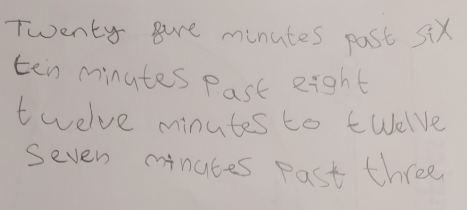 Twenty five minutes past six
ten minutes past eight
twelve minutes to twelve
seven minutes past three